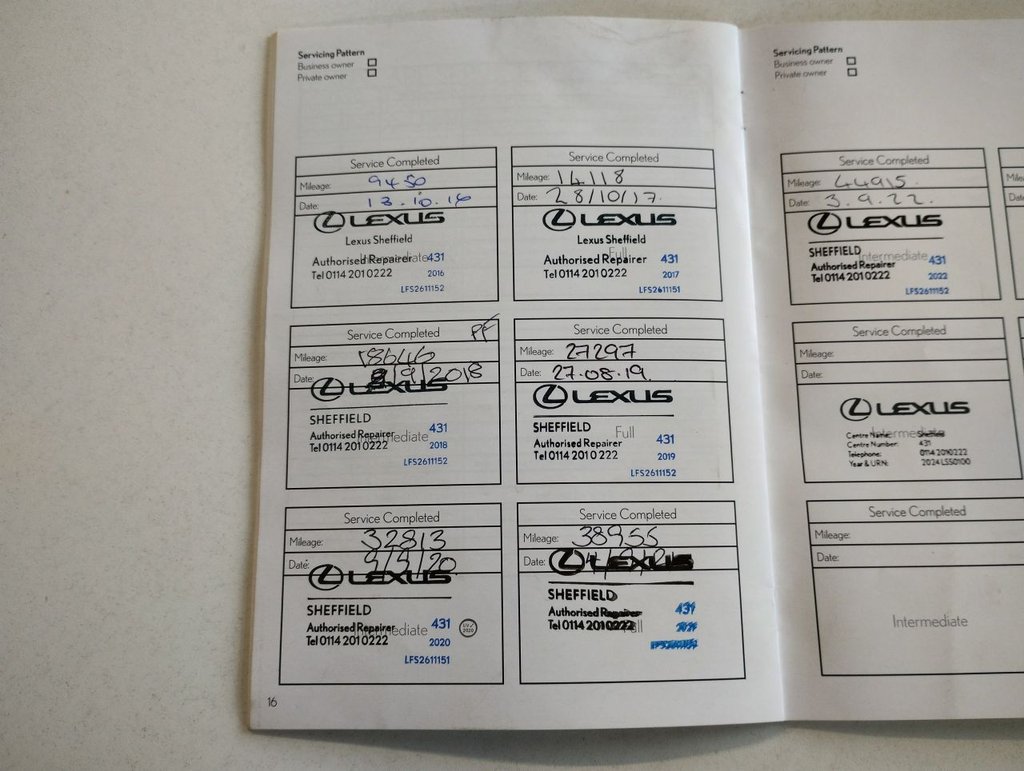 Servicing Pattern
Business owner
Private owner
Service Completed
Mileage: 9450
Date: 13.10.16
LEXUS
Lexus Sheffield
Intermediate
Authorised Repairer 431
Tel 0114 201 0222 2016
LFS2611152
Service Completed
Mileage: 14118
Date: 28/10/17.
LEXUS
Lexus Sheffield
Full
Authorised Repairer 431
Tel 0114 201 0222 2017
LFS2611151
Service Completed PF
Mileage: 18646
Date: 8/9/2018
LEXUS
SHEFFIELD
Authorised Repairer 431
Intermediate
Tel 0114 201 0222 2018
LFS2611152
Service Completed
Mileage: 27297
Date: 27.08.19.
LEXUS
SHEFFIELD
Full
Authorised Repairer 431
Tel 0114 201 0 222 2019
LFS2611152
Service Completed
Mileage: 32813
Date: 9/9/20
LEXUS
SHEFFIELD
Authorised Repairer 431
Intermediate
Tel 0114 201 0222 2020
LFS2611151
Service Completed
Mileage: 38955
Date:
LEXUS
SHEFFIELD
Authorised Repairer 431
Full
Tel 0114 201 0222
16
Servicing Pattern
Business owner
Private owner
Service Completed
Mileage: 44915
Date: 3.9.22.
LEXUS
SHEFFIELD
Intermediate
Authorised Repairer 431
Tel 0114 201 0222 2022
LFS2611152
Service Completed
Mileage:
Date:
LEXUS
Intermediate
Centre Name: Sheffield
Centre Number: 431
Telephone: 0114 2010222
Year & URN: 2024 LSS0100
Service Completed
Mileage:
Date:
Intermediate